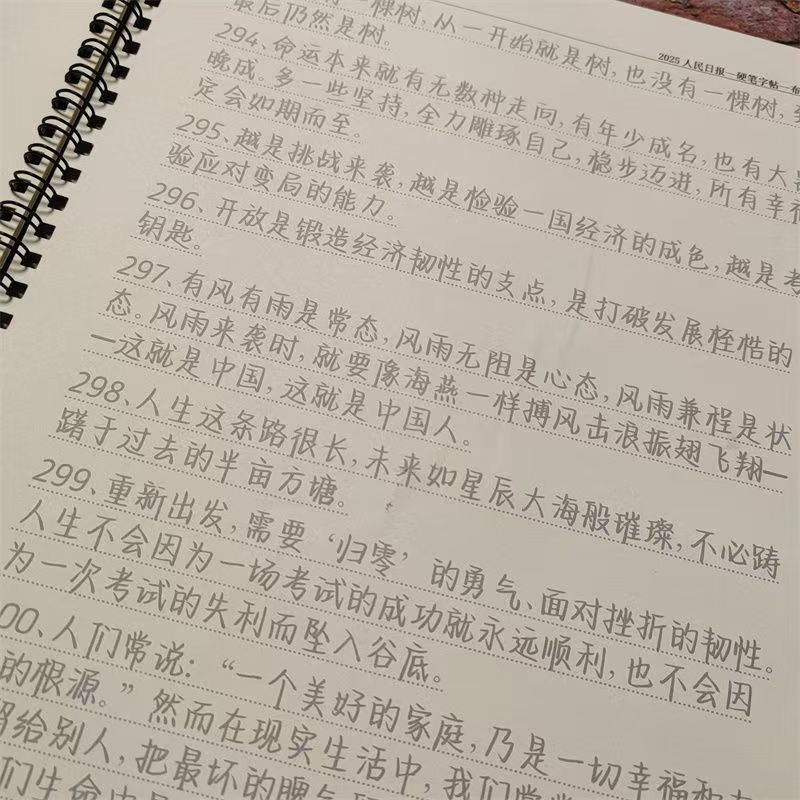 2025人民日报—硬笔字帖—布
一棵树,从一开始就是树,也没有一棵树,
最后仍然是树。
294、命运本来就有无数种走向,有年少成名,也有大器
晚成。多一些坚持,全力雕琢自己,稳步迈进,所有幸福
定会如期而至。
295、越是挑战来袭,越是检验一国经济的成色,越是考
验应对变局的能力。
296、开放是锻造经济韧性的支点,是打破发展桎梏的
钥匙。
297、有风有雨是常态,风雨无阻是心态,风雨兼程是状
态。风雨来袭时,就要像海燕一样搏风击浪振翅飞翔—
—这就是中国,这就是中国人。
298、人生这条路很长,未来如星辰大海般璀璨,不必踌
躇于过去的半亩方塘。
299、重新出发,需要‘归零’的勇气、面对挫折的韧性。
人生不会因为一场考试的成功就永远顺利,也不会因
为一次考试的失利而坠入谷底。
00、人们常说:“一个美好的家庭,乃是一切幸福和
的根源。”然而在现实生活中,我们常常
给别人,把最坏的脾气
们生命中